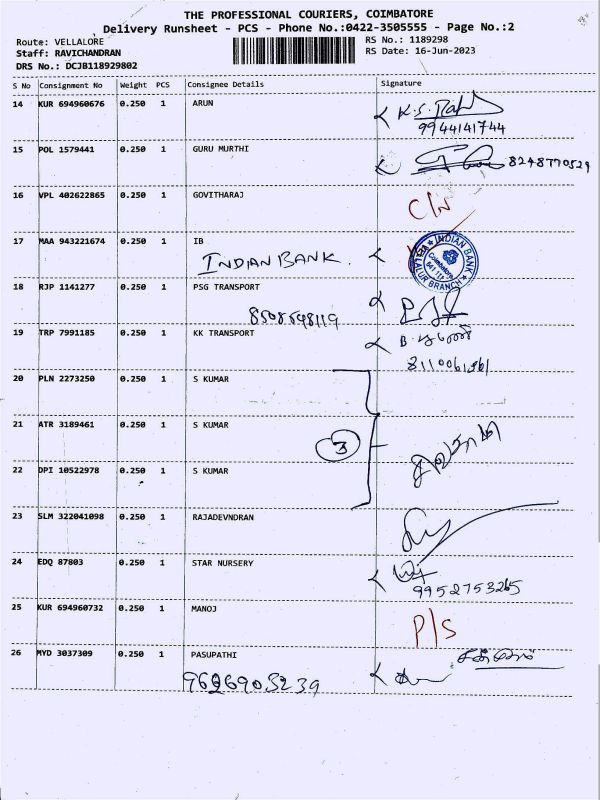 THE PROFESSIONAL COURIERS, COIMBATORE
Delivery Runsheet - PCS - Phone No.:0422-3505555 - Page No.:2
Route: VELLALORE RS No.: 1189298
Staff: RAVICHANDRAN RS Date: 16-Jun-2023
DRS No.: DCJB118929802
S No Consignment No Weight PCS Consignee Details Signature
14 KUR 694960676 0.250 1 ARUN
9944141744
15 POL 1579441 0.250 1 GURU MURTHI
8248770529
16 VPL 402622865 0.250 1 GOVITHARAJ
C/N
17 MAA 943221674 0.250 1 IB
INDIAN BANK.
INDIAN BANK
Coimbatore
VELLALUR BRANCH
18 RJP 1141277 0.250 1 PSG TRANSPORT
8508598119
19 TRP 7991185 0.250 1 KK TRANSPORT
20 PLN 2273250 0.250 1 S KUMAR
21 ATR 3189461 0.250 1 S KUMAR
3
22 DPI 10522978 0.250 1 S KUMAR
23 SLM 322041098 0.250 1 RAJADEVNDRAN
24 EDQ 87803 0.250 1 STAR NURSERY
9952753265
25 KUR 694960732 0.250 1 MANOJ
P/S
26 MYD 3037309 0.250 1 PASUPATHI
9626903239